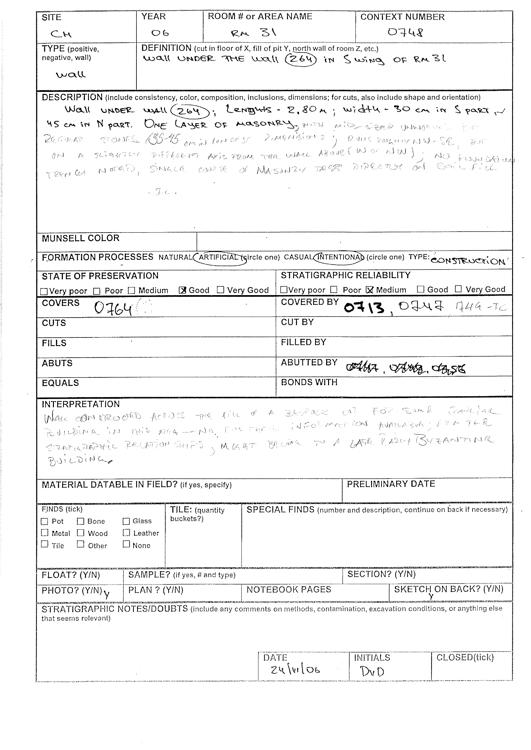 SITE YEAR ROOM # or AREA NAME CONTEXT NUMBER
CH 06 RM 31 0748
TYPE (positive, negative, wall) DEFINITION (cut in floor of X, fill of pit Y, north wall of room Z, etc.)
wall WALL UNDER THE WALL (264) IN S WING OF RM 31
DESCRIPTION (include consistency, color, composition, inclusions, dimensions; for cuts, also include shape and orientation)
WALL UNDER WALL (264); LENGHTS - 2,80m; WIDTH - 30 cm IN S PART,
45 cm IN N PART. ONE LAYER OF MASONRY,
DIMENSIONS;
ON A SLIGHTLY DIFFERENT AXIS FROM THE WALL ABOVE; NO FOUNDATION
TRENCH NOTED, SINGLE COURSE OF MASONRY DIRECTLY
MUNSELL COLOR
FORMATION PROCESSES NATURAL ARTIFICIAL (circle one) CASUAL INTENTIONAL (circle one) TYPE: CONSTRUCTION
STATE OF PRESERVATION STRATIGRAPHIC RELIABILITY
Very poor Poor Medium Good Very Good Very poor Poor Medium Good Very Good
COVERS 0764 COVERED BY 0713, 0747
CUTS CUT BY
FILLS FILLED BY
ABUTS ABUTTED BY
EQUALS BONDS WITH
INTERPRETATION
WALL CONSTRUCTED THE FILL OF A
BUILDING IN THIS INFORMATION AVAILABLE;
STRATIGRAPHIC RELATIONSHIPS, MIGHT BELONG TO A BYZANTINE
BUILDING.
MATERIAL DATABLE IN FIELD? (if yes, specify) PRELIMINARY DATE
FINDS (tick) TILE: (quantity buckets?) SPECIAL FINDS (number and description, continue on back if necessary)
Pot Bone Glass
Metal Wood Leather
Tile Other None
FLOAT? (Y/N) SAMPLE? (if yes, # and type) SECTION? (Y/N)
PHOTO? (Y/N) y PLAN ? (Y/N) NOTEBOOK PAGES SKETCH ON BACK? (Y/N) y
STRATIGRAPHIC NOTES/DOUBTS (include any comments on methods, contamination, excavation conditions, or anything else
that seems relevant)
DATE INITIALS CLOSED(tick)
24/VI/06 DvD